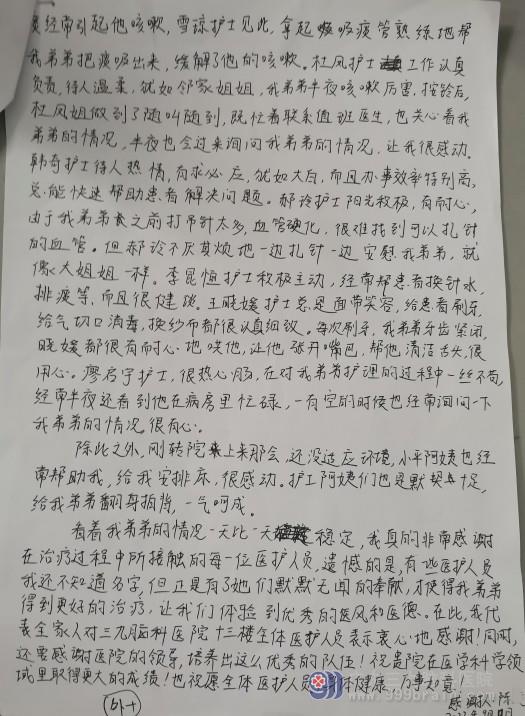 经常引起他咳嗽，雪谅护士见此，拿起吸痰管熟练地帮
我弟弟把痰吸出来，缓解了他的咳嗽。杜风护士工作认真
负责，待人温柔，犹如邻家姐姐，我弟弟半夜咳嗽厉害，按铃后，
杜风姐做到了随叫随到，既忙着联系值班医生，也关心着我
弟弟的情况，半夜也会过来询问我弟弟的情况，让我很感动。
韩奇护士待人热情，有求必应，犹如大白，而且办事效率特别高，
总能快速帮助患者解决问题。郝谅护士阳光积极，有耐心，
由于我弟弟之前打吊针太多，血管硬化，很难找到可以扎针
的血管。但郝谅不厌其烦地一边扎针一边安慰我弟弟，就
像大姐姐一样。李昆恒护士积极主动，经常帮患者换针水，
排痰等，而且很健谈。王晓媛护士总是面带笑容，给患者刷牙，
给气切口消毒，换纱布都很认真细致。每次刷牙，我弟弟牙齿紧闭，
晓媛都很有耐心地哄他，让他张开嘴巴，帮他清洁舌头，很
用心。廖启宇护士，很热心肠，在对我弟弟护理的过程中一丝不苟，
经常半夜还看到他在病房里忙碌，一有空的时候也经常询问一下
我弟弟的情况，很有心。
除此之外，刚转院上来那会，还没适应环境，小平阿姨也经
常帮助我，给我安排床，很感动。护工阿姨们也是默契十足，
给我弟弟翻身拍背，一气呵成。
看着我弟弟的情况一天比一天稳定，我真的非常感谢
在治疗过程中所接触的每一位医护人员，遗憾的是，有些医护人员
我还不知道名字，但正是有了她们默默无闻的奉献，才使得我弟弟
得到更好的治疗，让我们体验到优秀的医风和医德。在此，我代
表全家人对三九脑科医院十三楼全体医护人员表示衷心地感谢！同时，
还要感谢医院的领导，培养出这么优秀的队伍！祝贵院在医学科学领
域里取得更大的成绩！也祝愿全体医护人员身体健康，万事如意！
感谢人：陈